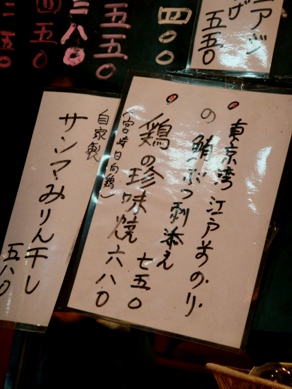 アジ
五五〇
四〇〇
五五〇
三八〇
東京湾 江戸前のり
の 鮪ぶつ刺添え
七五〇
鶏の珍味焼 六八〇
(宮崎日向鶏)
自家製
サンマみりん干し
五八〇